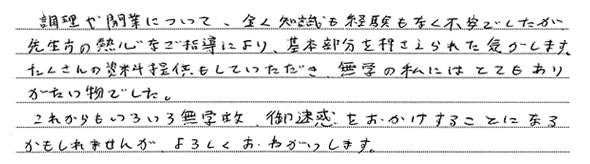 調理や開業について、全く知識も経験もなく不安でしたが、
先生方の熱心なご指導により、基本部分を押さえられた気がします。
たくさんの資料提供もしていただき、無学の私にはとてもあり
がたい物でした。
これからもいろいろ無学故、御迷惑をおかけすることになる
かもしれませんが、よろしくおねがいします。